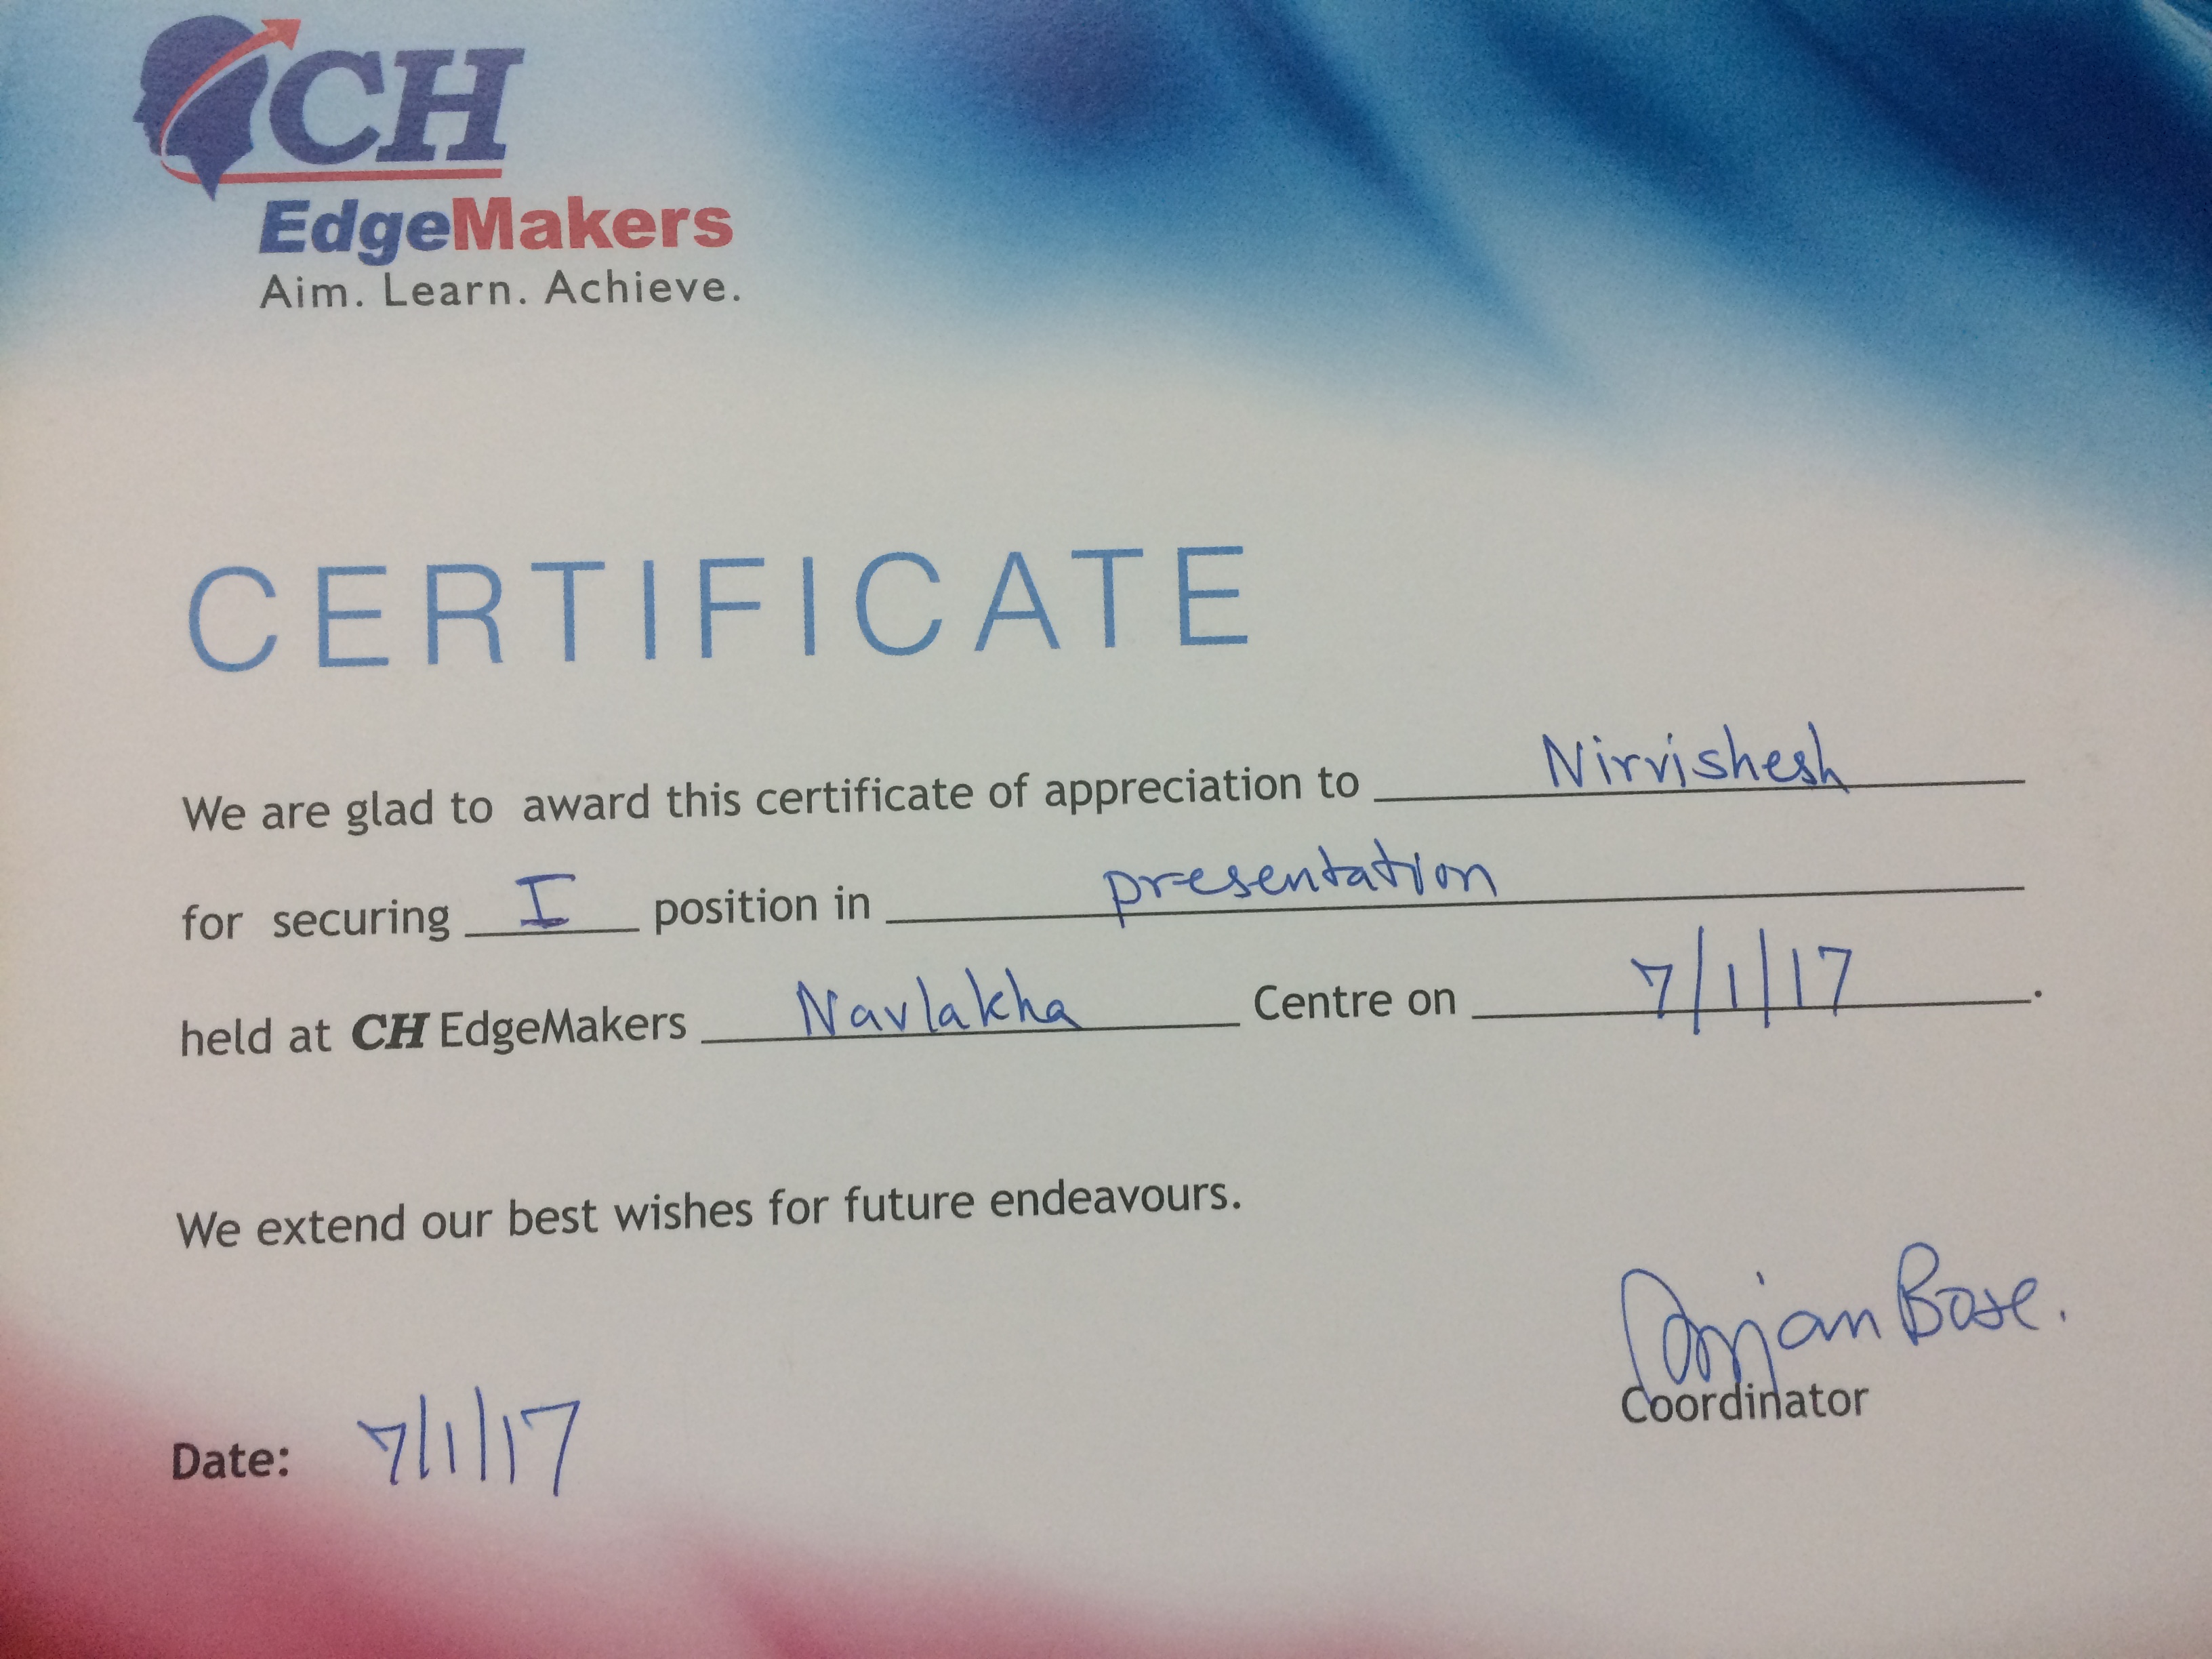 CH
EdgeMakers
Aim. Learn. Achieve.
CERTIFICATE
We are glad to award this certificate of appreciation to Nirvishesh
for securing I position in presentation
held at CH EdgeMakers Navlakha Centre on 7/1/17.
We extend our best wishes for future endeavours.
Bose.
Coordinator
Date: 7/1/17